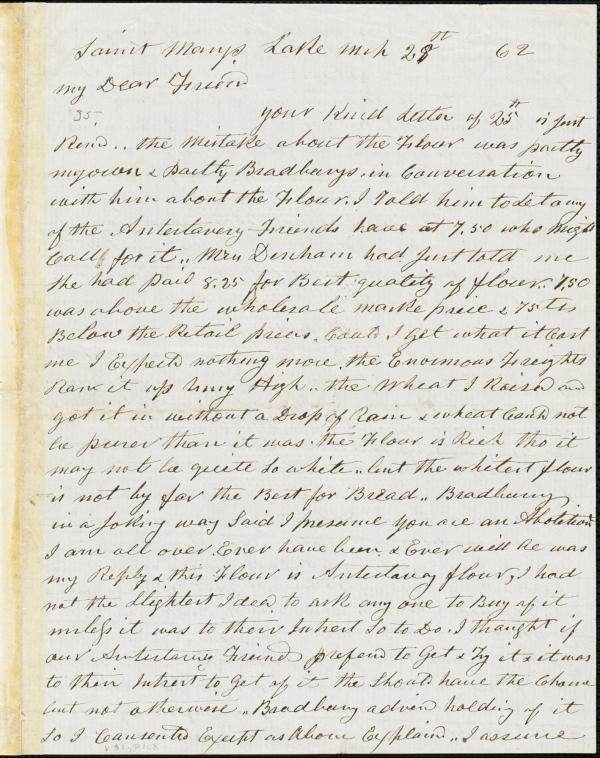 Saint Mary's Lake Mch 28th 62
My Dear Friend
35
your Kind Letter of 25th is Just
Recd.. the Mistake about the Flour was partly
my own & Partly Bradburys. in Conversation
with him about the Flour. I Told him to Let any
of the Antestavery Friends have at 7.50 who Might
Call for it.. Mrs Denham had Just told me
She had Paid 8.25 for Best quality of flour. 7.50
was above the wholesale marke price & 75 cts
Below the Retail prices. Could I get what it Cost
me I Expects nothing more, the Enormous Freights
Rane it up Very High.. the Wheat I Raised and
got it in without a Drop of Rain & wheat Could not
be purer than it was. the Flour is Rich tho it
may not be quite So white.. but the whitest flour
is not by far the Best for Bread.. Bradbury
in a Joking way Said I Presume you are an Abolition
I am all over. Ever have been & Ever will be was
my Reply & this Flour is Antestavery flour, I had
not the Slightest Idea to ask any one to Buy of it
unless it was to their Intrest So to Do. I thought if
our Antestavery Friends prefered to Get & Try it & it was
to their Intrest to Get of it the Should have the Chance
but not otherwise.. Bradbury advised holding of it
So I Consented Except as Above Explaind.. I assure